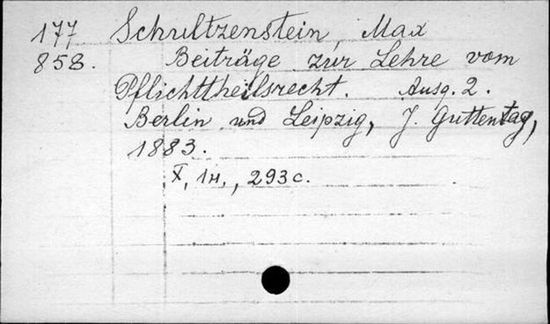 177 Schultzenstein, Max
858. Beiträge zur Lehre vom
Pflichttheilsrecht. Ausg. 2.
Berlin und Leipzig, J. Guttentag,
1883.
X, 1н., 293 с.